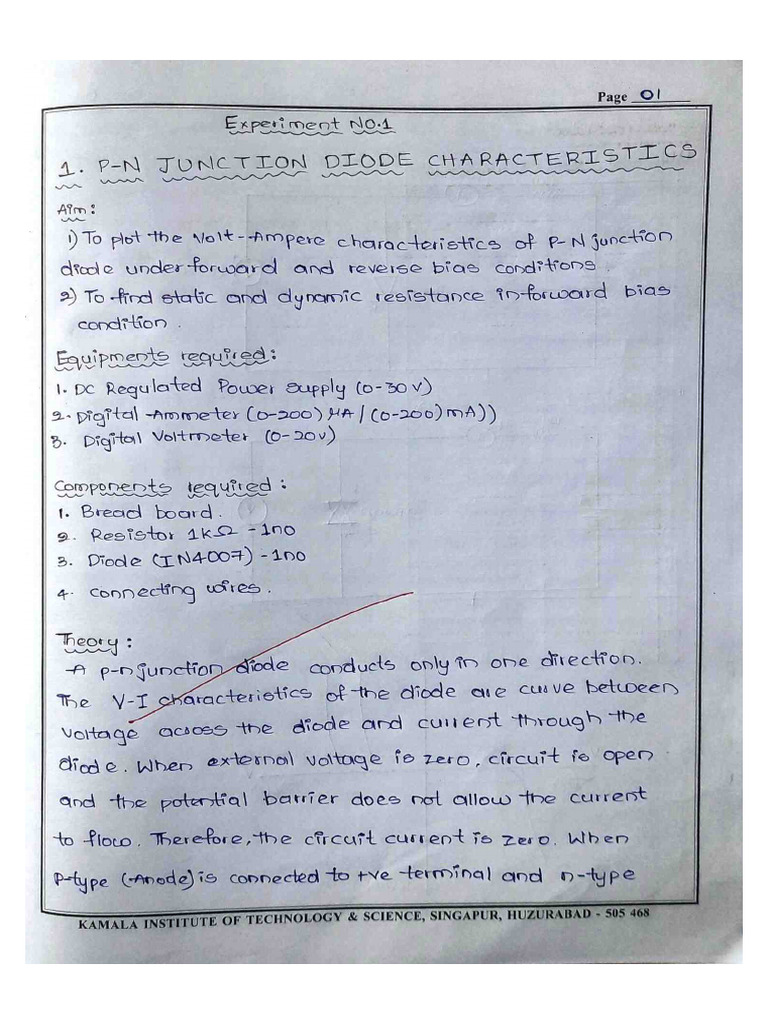 Page 01
Experiment NO.1
1. P-N JUNCTION DIODE CHARACTERISTICS
Aim:
1) To plot the Volt-Ampere characteristics of P-N junction
diode under forward and reverse bias conditions.
2) To find static and dynamic resistance in forward bias
condition.
Equipments required:
1. DC Regulated Power supply (0-30V)
2. Digital Ammeter (0-200) μA / (0-200) mA))
3. Digital Voltmeter (0-20V)
Components required:
1. Bread board.
2. Resistor 1kΩ - 1no
3. Diode (IN4007) - 1no
4. connecting wires.
Theory:
A p-n junction diode conducts only in one direction.
The V-I characteristics of the diode are curve between
voltage across the diode and current through the
diode. When external voltage is zero, circuit is open
and the potential barrier does not allow the current
to flow. Therefore, the circuit current is zero. When
P-type (Anode) is connected to +ve terminal and n-type
KAMALA INSTITUTE OF TECHNOLOGY & SCIENCE, SINGAPUR, HUZURABAD - 505 468